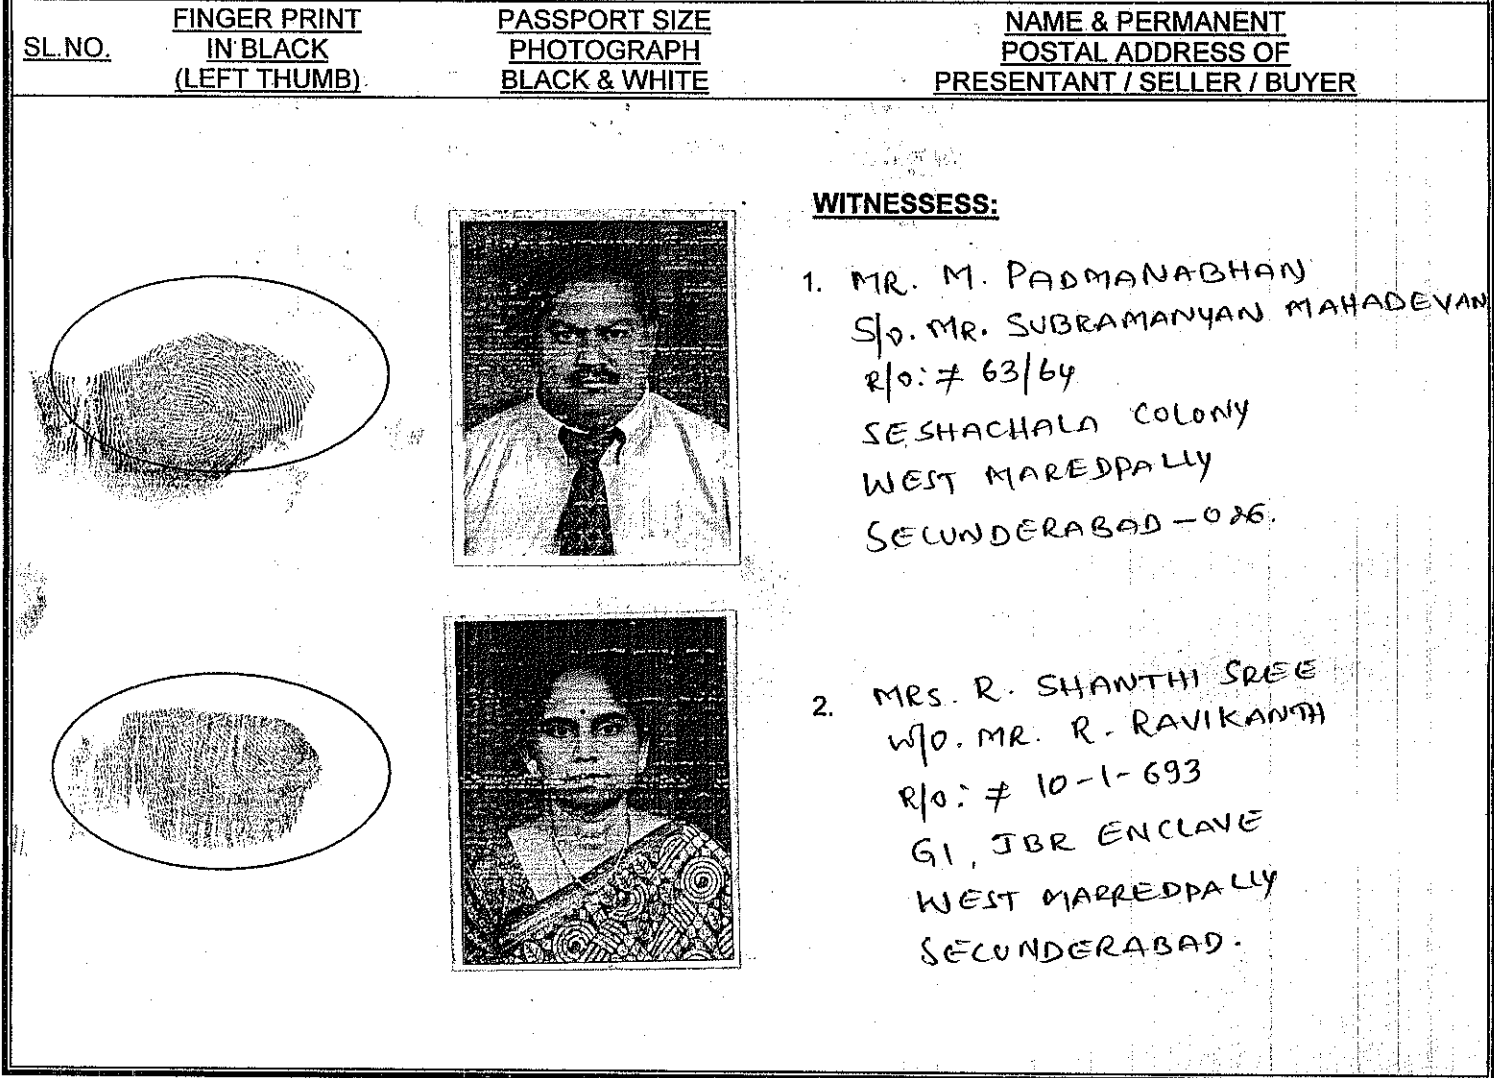 SL.NO.
FINGER PRINT
IN BLACK
(LEFT THUMB)
PASSPORT SIZE
PHOTOGRAPH
BLACK & WHITE
NAME & PERMANENT
POSTAL ADDRESS OF
PRESENTANT / SELLER / BUYER
WITNESSESS:
1. MR. M. PADMANABHAN
S/o. MR. SUBRAMANYAN MAHADEVAN
R/o: # 63/64
SESHACHALA COLONY
WEST MAREDPALLY
SECUNDERABAD - 026.
2. MRS. R. SHANTHI SREE
W/O. MR. R. RAVIKANTH
R/o: # 10-1-693
G1, JBR ENCLAVE
WEST MARREDPALLY
SECUNDERABAD.